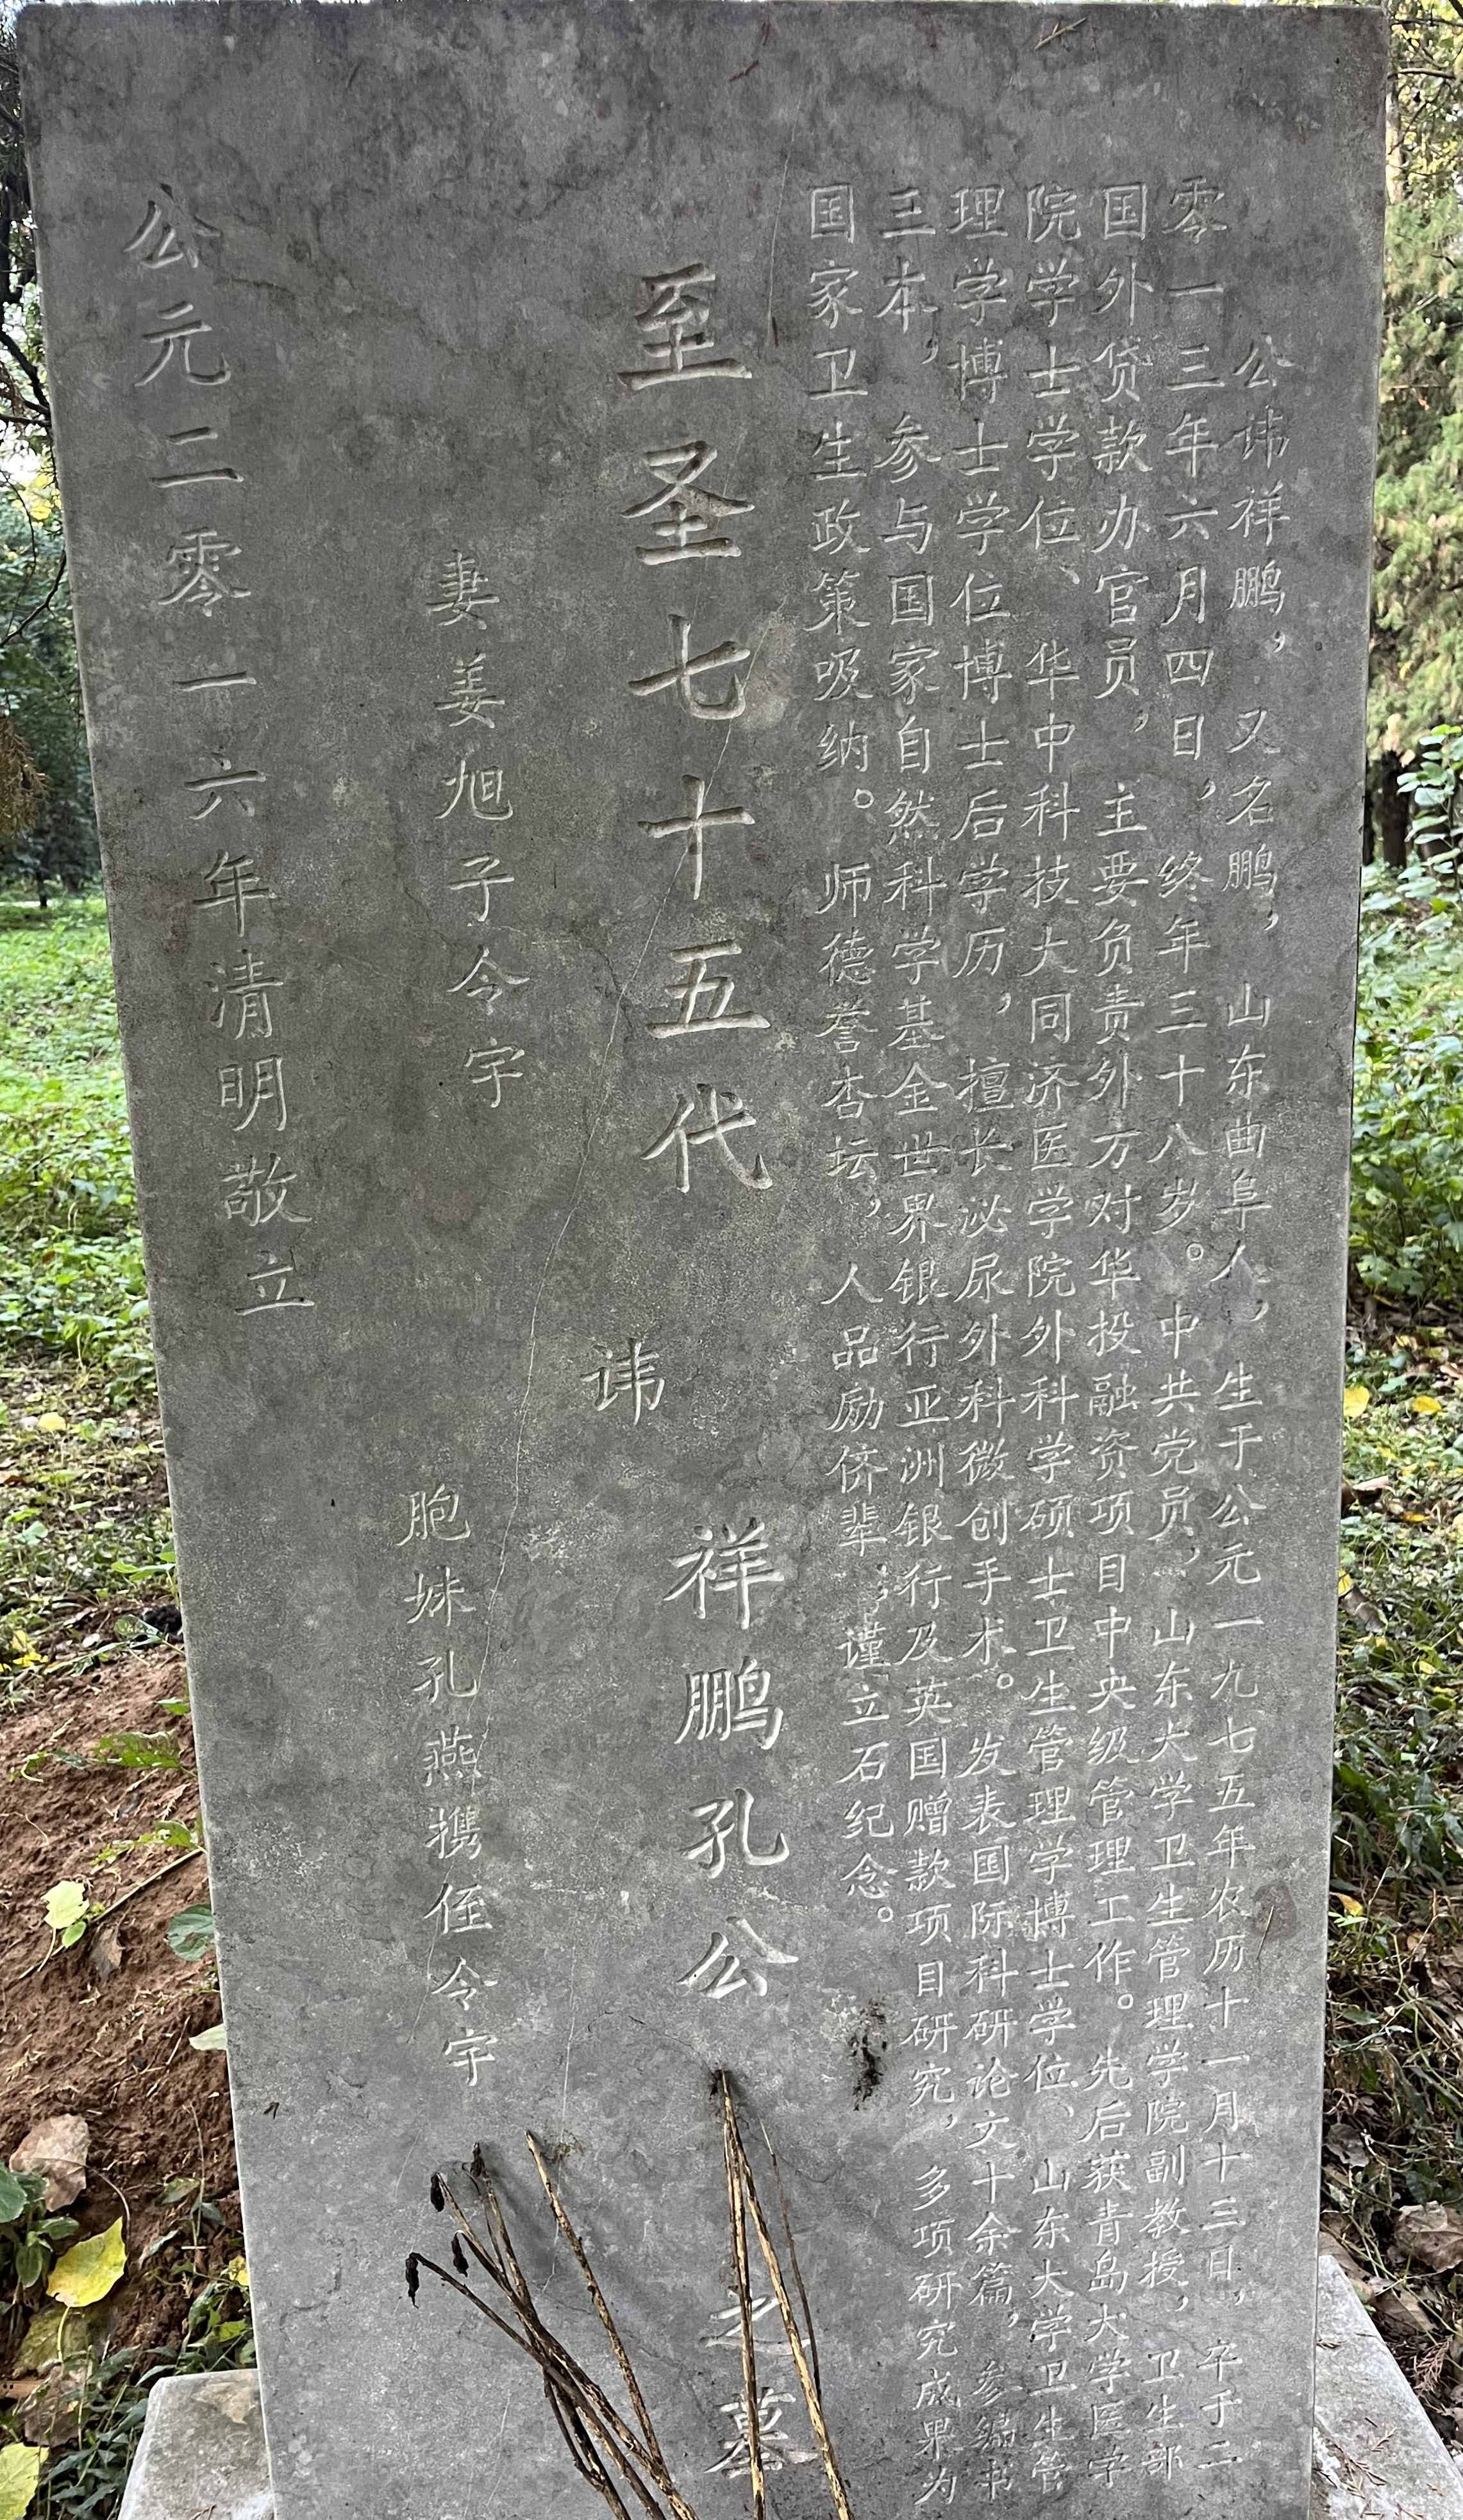 公讳祥鹏，又名鹏，山东曲阜人，生于公元一九七五年农历十一月十三日，卒于二
零一三年六月四日，终年三十八岁。中共党员，山东大学卫生管理学院副教授，卫生部
国外贷款办官员，主要负责外方对华投融资项目中央级管理工作。先后获青岛大学医学
院学士学位、华中科技大同济医学院外科学硕士卫生管理学博士学位、山东大学卫生管
理学博士学位博士后学历，擅长泌尿外科微创手术。发表国际科研论文十余篇，参编书
三本，参与国家自然科学基金世界银行亚洲银行及英国赠款项目研究，多项研究成果为
国家卫生政策吸纳。师德誉杏坛，人品励侪辈，谨立石纪念。
至圣七十五代 讳 祥鹏孔公之墓
妻姜旭子令宇
胞妹孔燕携侄令宇
公元二零一六年清明敬立